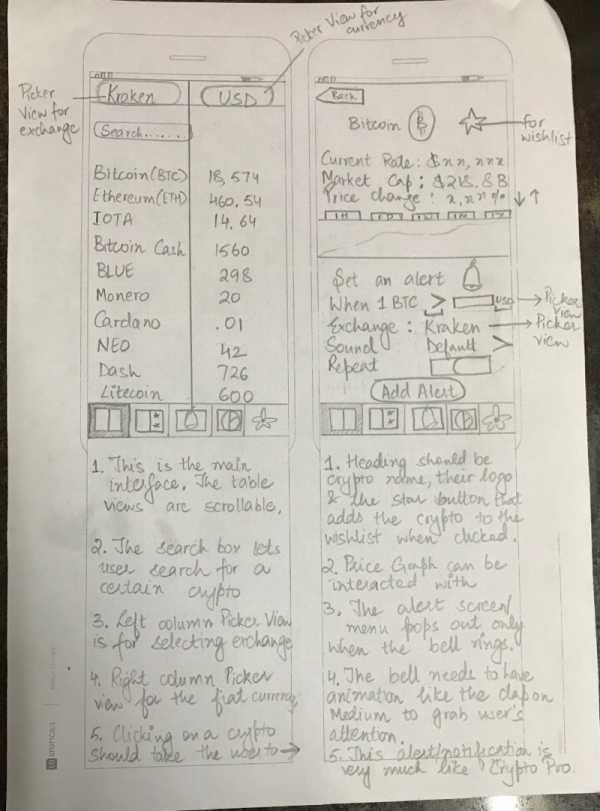 Picker View for
currency
Picker
View for
exchange
Kraken
USD
Search......
Bitcoin(BTC) 18,574
Ethereum(ETH) 460.54
IOTA 14.64
Bitcoin Cash 1560
BLUE 298
Monero 20
Cardano .01
NEO 42
Dash 726
Litecoin 600
1. This is the main
interface. The table
views are scrollable.
2. The search box lets
user search for a
certain crypto
3. Left column Picker View
is for selecting exchange
4. Right column Picker
view for the fiat currency
5. Clicking on a crypto
should take the user to →
Back
Bitcoin ₿
for
wishlist
Current Rate: $xx,xxx
Market Cap: $218.8B
Price change: x.xx% ↓↑
Set an alert
When 1 BTC > USD
Picker
View
Exchange: Kraken
Picker
view
Sound Default >
Repeat
Add Alert
1. Heading should be
crypto name, their logo
& the star button that
adds the crypto to the
wishlist when clicked.
2. Price Graph can be
interacted with
3. The alert screen/
menu pops out only
when the bell rings.
4. The bell needs to have
animation like the clap on
Medium to grab user's
attention.
5. This alert/notification is
very much like Crypto Pro.